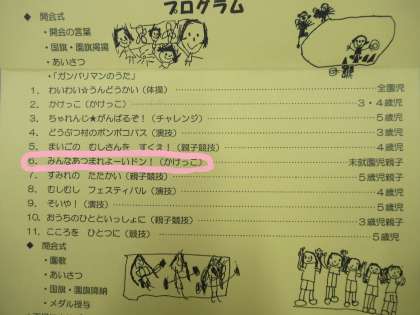 プログラム
◆ 開会式
・開会の言葉
・国旗・園旗掲揚
・あいさつ
・「ガンバリマンのうた」
1. わいわい☆うんどうかい(体操) 全園児
2. かけっこ(かけっこ) 3・4歳児
3. ちゃれんじ★がんばるぞ!(チャレンジ) 5歳児
4. どうぶつ村のポンポコパス(演技) 3歳児
5. まいごの むしさんを すくえ!(親子競技) 4歳児
6. みんなあつまれよーいドン!(かけっこ) 未就園児親子
7. すみれの たたかい(親子競技) 5歳児
8. むしむし フェスティバル(演技) 4歳児
9. そいや!(演技) 5歳児
10. おうちのひとといっしょに(親子競技) 3歳児親子
11. こころを ひとつに(競技) 5歳児
◆ 閉会式
・園歌
・あいさつ
・国旗・園旗降納
・メダル授与